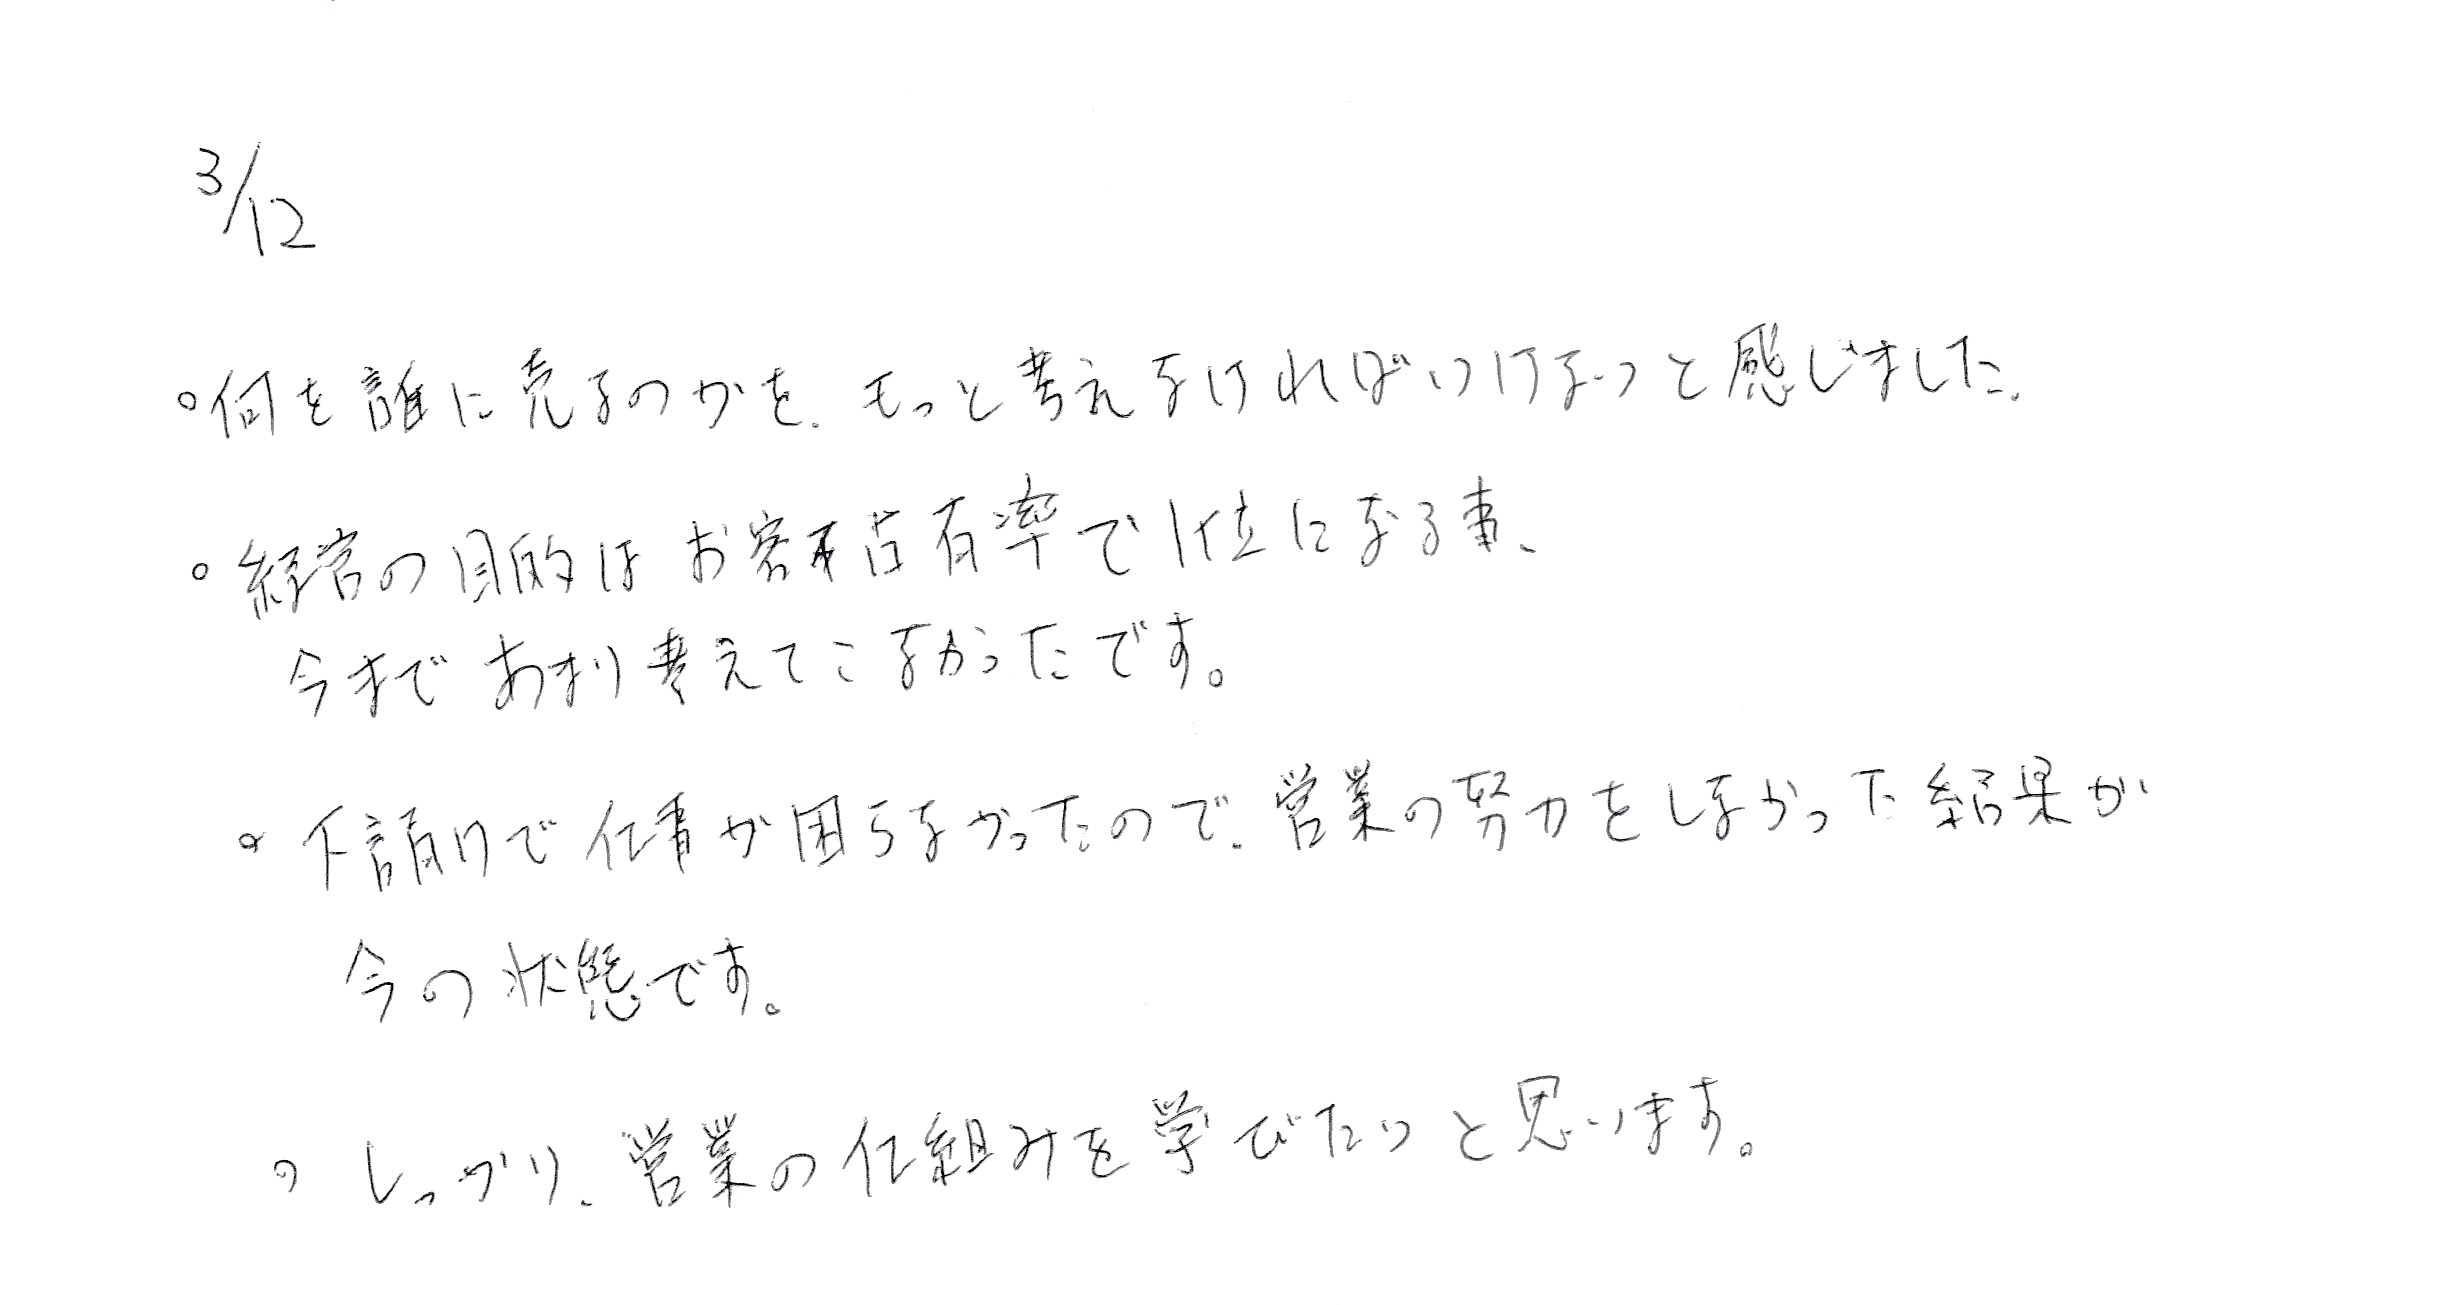 3/12
○何を誰に売るのかを、もっと考えなければいけないと感じました。
○経営の目的はお客様占有率で1位になる事、
今まであまり考えてこなかったです。
○下請けで仕事が困らなかったので、営業の努力をしなかった結果が
今の状態です。
○しっかり、営業の仕組みを学びたいと思います。